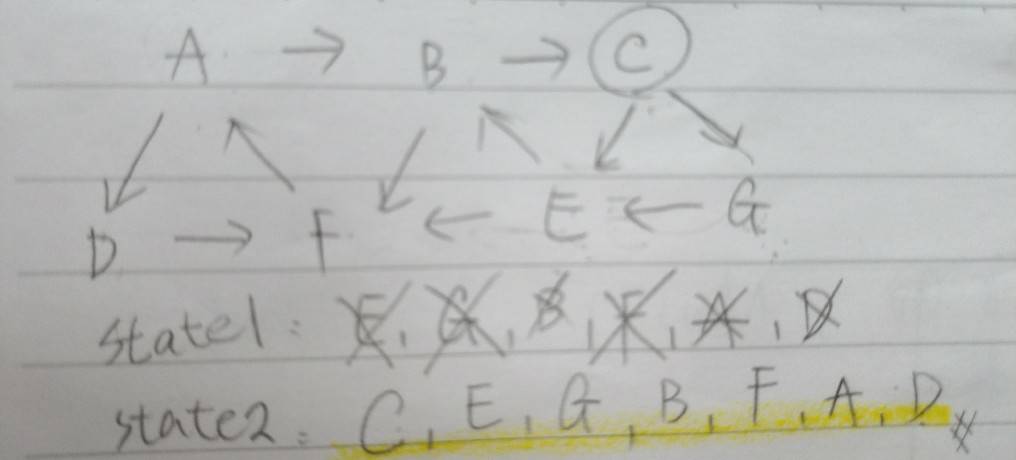 A → B → C
D → F ← E ← G
state1: E, G, B, F, A, D
state2: C, E, G, B, F, A, D